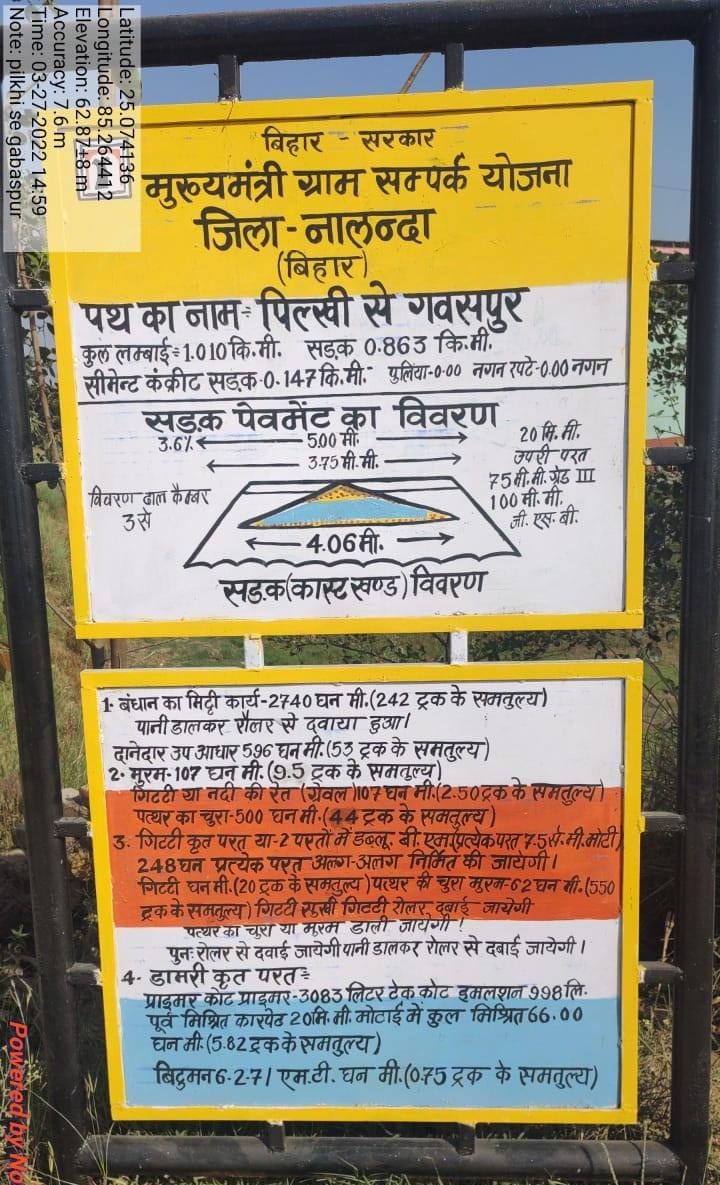 Latitude: 25.074136
Longitude: 85.264412
Elevation: 62.87±8 m
Accuracy: 7.6 m
Time: 03-27-2022 14:59
Note: pilkhi se gabaspur
बिहार - सरकार
मुख्यमंत्री ग्राम सम्पर्क योजना
जिला-नालन्दा
(बिहार)
पथ का नाम÷ पिल्खी से गवसपुर
कुल लम्बाई÷1.010 कि.मी. सड़क 0.863 कि.मी.
सीमेन्ट कंक्रीट सड़क-0.147 कि.मी. पुलिया-0.00 नगन रपटे-0.00 नगन
सड़क पेवमेंट का विवरण
3.6% 5.00 मी.
3.75 मी.मी.
20 मि.मी.
उपरी परत
75 मी.मी. ग्रेड III
100 मी.मी.
जी. एस. बी.
विवरण ढाल कैम्बर
3 से
4.06 मी.
सड़क (कास्ट खण्ड) विवरण
1- बंधान का मिट्टी कार्य-2740 घन मी.(242 ट्रक के समतुल्य)
पानी डालकर रौलर से दवाया हुआ।
दानेदार उप आधार 596 घन मी.(53 ट्रक के समतुल्य)
2- मुरम-107 घन मी.(9.5 ट्रक के समतुल्य)
गिटटी या नदी की रेत (ग्रेवल)107 घन मी.(2.50 ट्रक के समतुल्य)
पत्थर का चुरा-500 घन मी.(44 ट्रक के समतुल्य)
3. गिटटी कृत परत या-2 परतों में डब्लू. बी. एम(प्रत्येक परत 7.5 से.मी. मोटी)
248 घन प्रत्येक परत अलग-अलग निर्मित की जायेगी।
गिटटी घन मी.(20 ट्रक के समतुल्य) पत्थर की चुरा मुरम-62 घन मी.(550
ट्रक के समतुल्य) गिटटी सुखी गिटटी रोलर दबाई जायेगी
पत्थर का चुरा या मुरम डाली जायेगी !
पुनः रोलर से दवाई जायेगी पानी डालकर रोलर से दबाई जायेगी।
4- डामरी कृत परत÷
प्राइमर कोट प्राइमर-3083 लिटर टेक कोट इमलशन 998 लि.
पूर्व मिश्रित कारपेट 20 मि.मी. मोटाई में कुल मिश्रित 66.00
घन मी.(5.82 ट्रक के समतुल्य)
बिटुमन 6-2-71 एम.टी. घन मी.(0.75 ट्रक के समतुल्य)
Powered by No